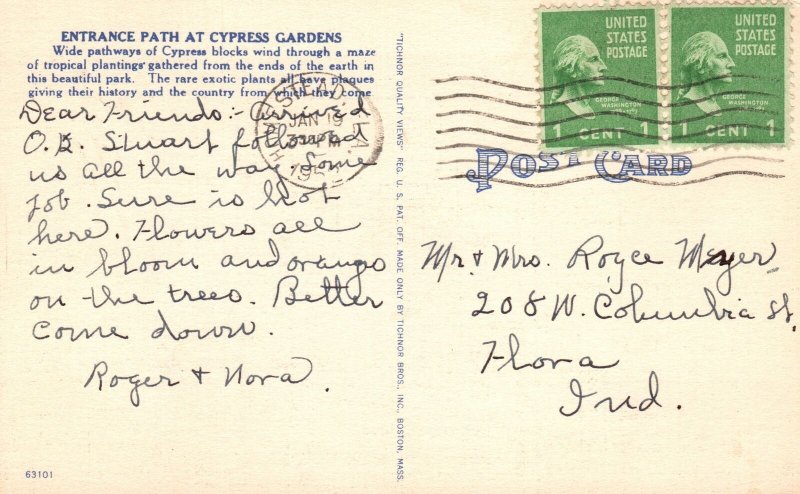 ENTRANCE PATH AT CYPRESS GARDENS
Wide pathways of Cypress blocks wind through a maze
of tropical plantings gathered from the ends of the earth in
this beautiful park. The rare exotic plants all have plaques
giving their history and the country from which they come.
Dear Friends:- Arrived
O.K. Stuart followed
us all the way. Some
job. Sure is hot
here. Flowers all
in bloom and orange
on the trees. Better
come down.
Roger & Nora.
63101
"TICHNOR QUALITY VIEWS" REG. U. S. PAT. OFF. MADE ONLY BY TICHNOR BROS., INC., BOSTON, MASS.
UNITED STATES POSTAGE
GEORGE WASHINGTON
1 CENT 1
UNITED STATES POSTAGE
GEORGE WASHINGTON
1 CENT 1
HOMESTEAD, FLA.
JAN 15
PM
POST CARD
Mr. & Mrs. Royce Meyer
208 W. Columbia St.
Flora
Ind.